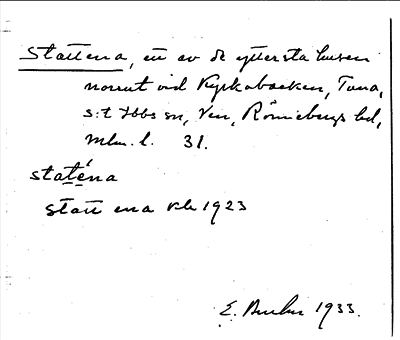 Stattena, en av de yttersta husen
norrut vid Kyrkobacken, Tuna,
S:t Ibbs sn, Ven, Rönnebergs hd,
Mlm. l. 31.
staténa
Statt ena kb 1923
E. 1933.